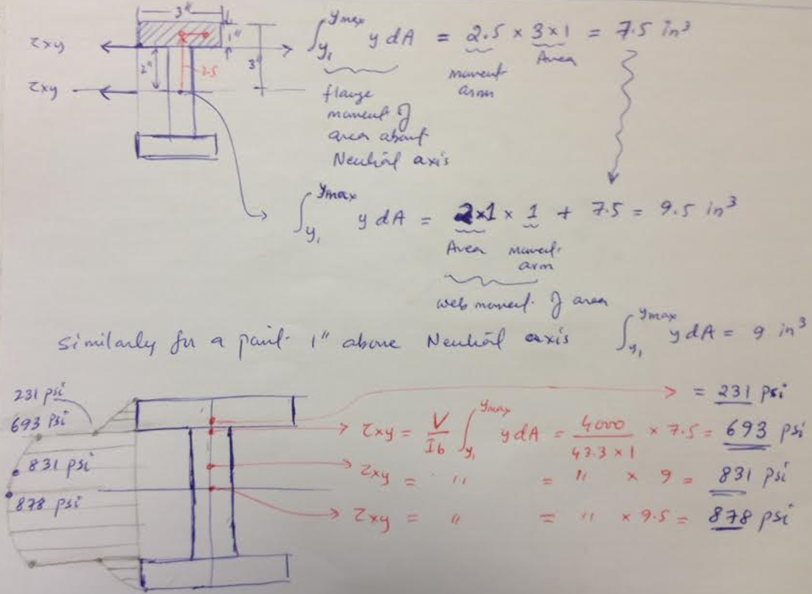 3"
τxy
1"
3"
2"
2.5
τxy
∫_{y₁}^{ymax} y dA = 2.5 × 3×1 = 7.5 in³
moment arm
Area
flange
moment of
area about
Neutral axis
∫_{y₁}^{ymax} y dA = 2×1 × 1 + 7.5 = 9.5 in³
Area moment
arm
web moment of area
Similarly for a point 1" above Neutral axis ∫_{y₁}^{ymax} y dA = 9 in³
231 psi
693 psi
831 psi
878 psi
= 231 psi
τxy = V/Ib ∫_{y₁}^{ymax} y dA = 4000/(43.3 × 1) × 7.5 = 693 psi
τxy = " = " × 9 = 831 psi
τxy = " = " × 9.5 = 878 psi